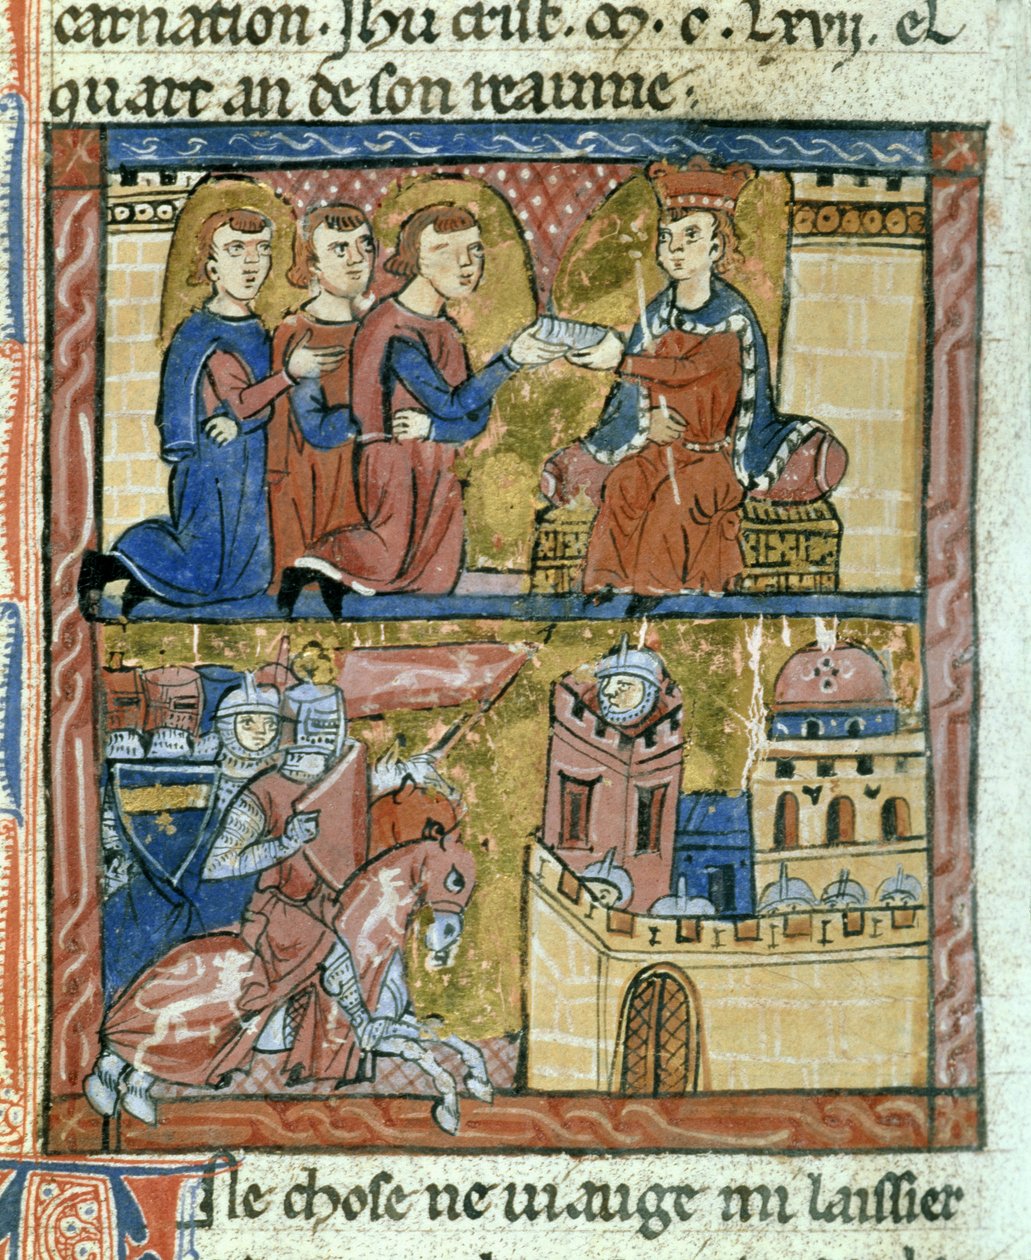 carnation. Jhu crist. m. c. Lxvij. el
quart an de son reaume.
Ne chose ne uiauge mi laissier